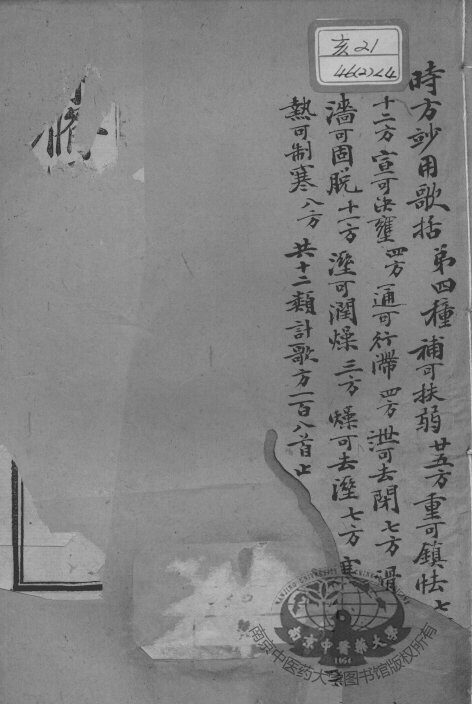 亥21
時方竗用歌括 第四種 補可扶弱 廿五方 重可鎮怯 七
十二方 宣可决壅 四方 通可行滯 四方 泄可去閉 七方 滑
濇可固脱 十一方 溼可潤燥 三方 燥可去溼 七方 寒
熱可制寒 八方 共十二類計歌方一百八首止
南京中醫藥大學
1954
南京中医药大学图书馆版权所有